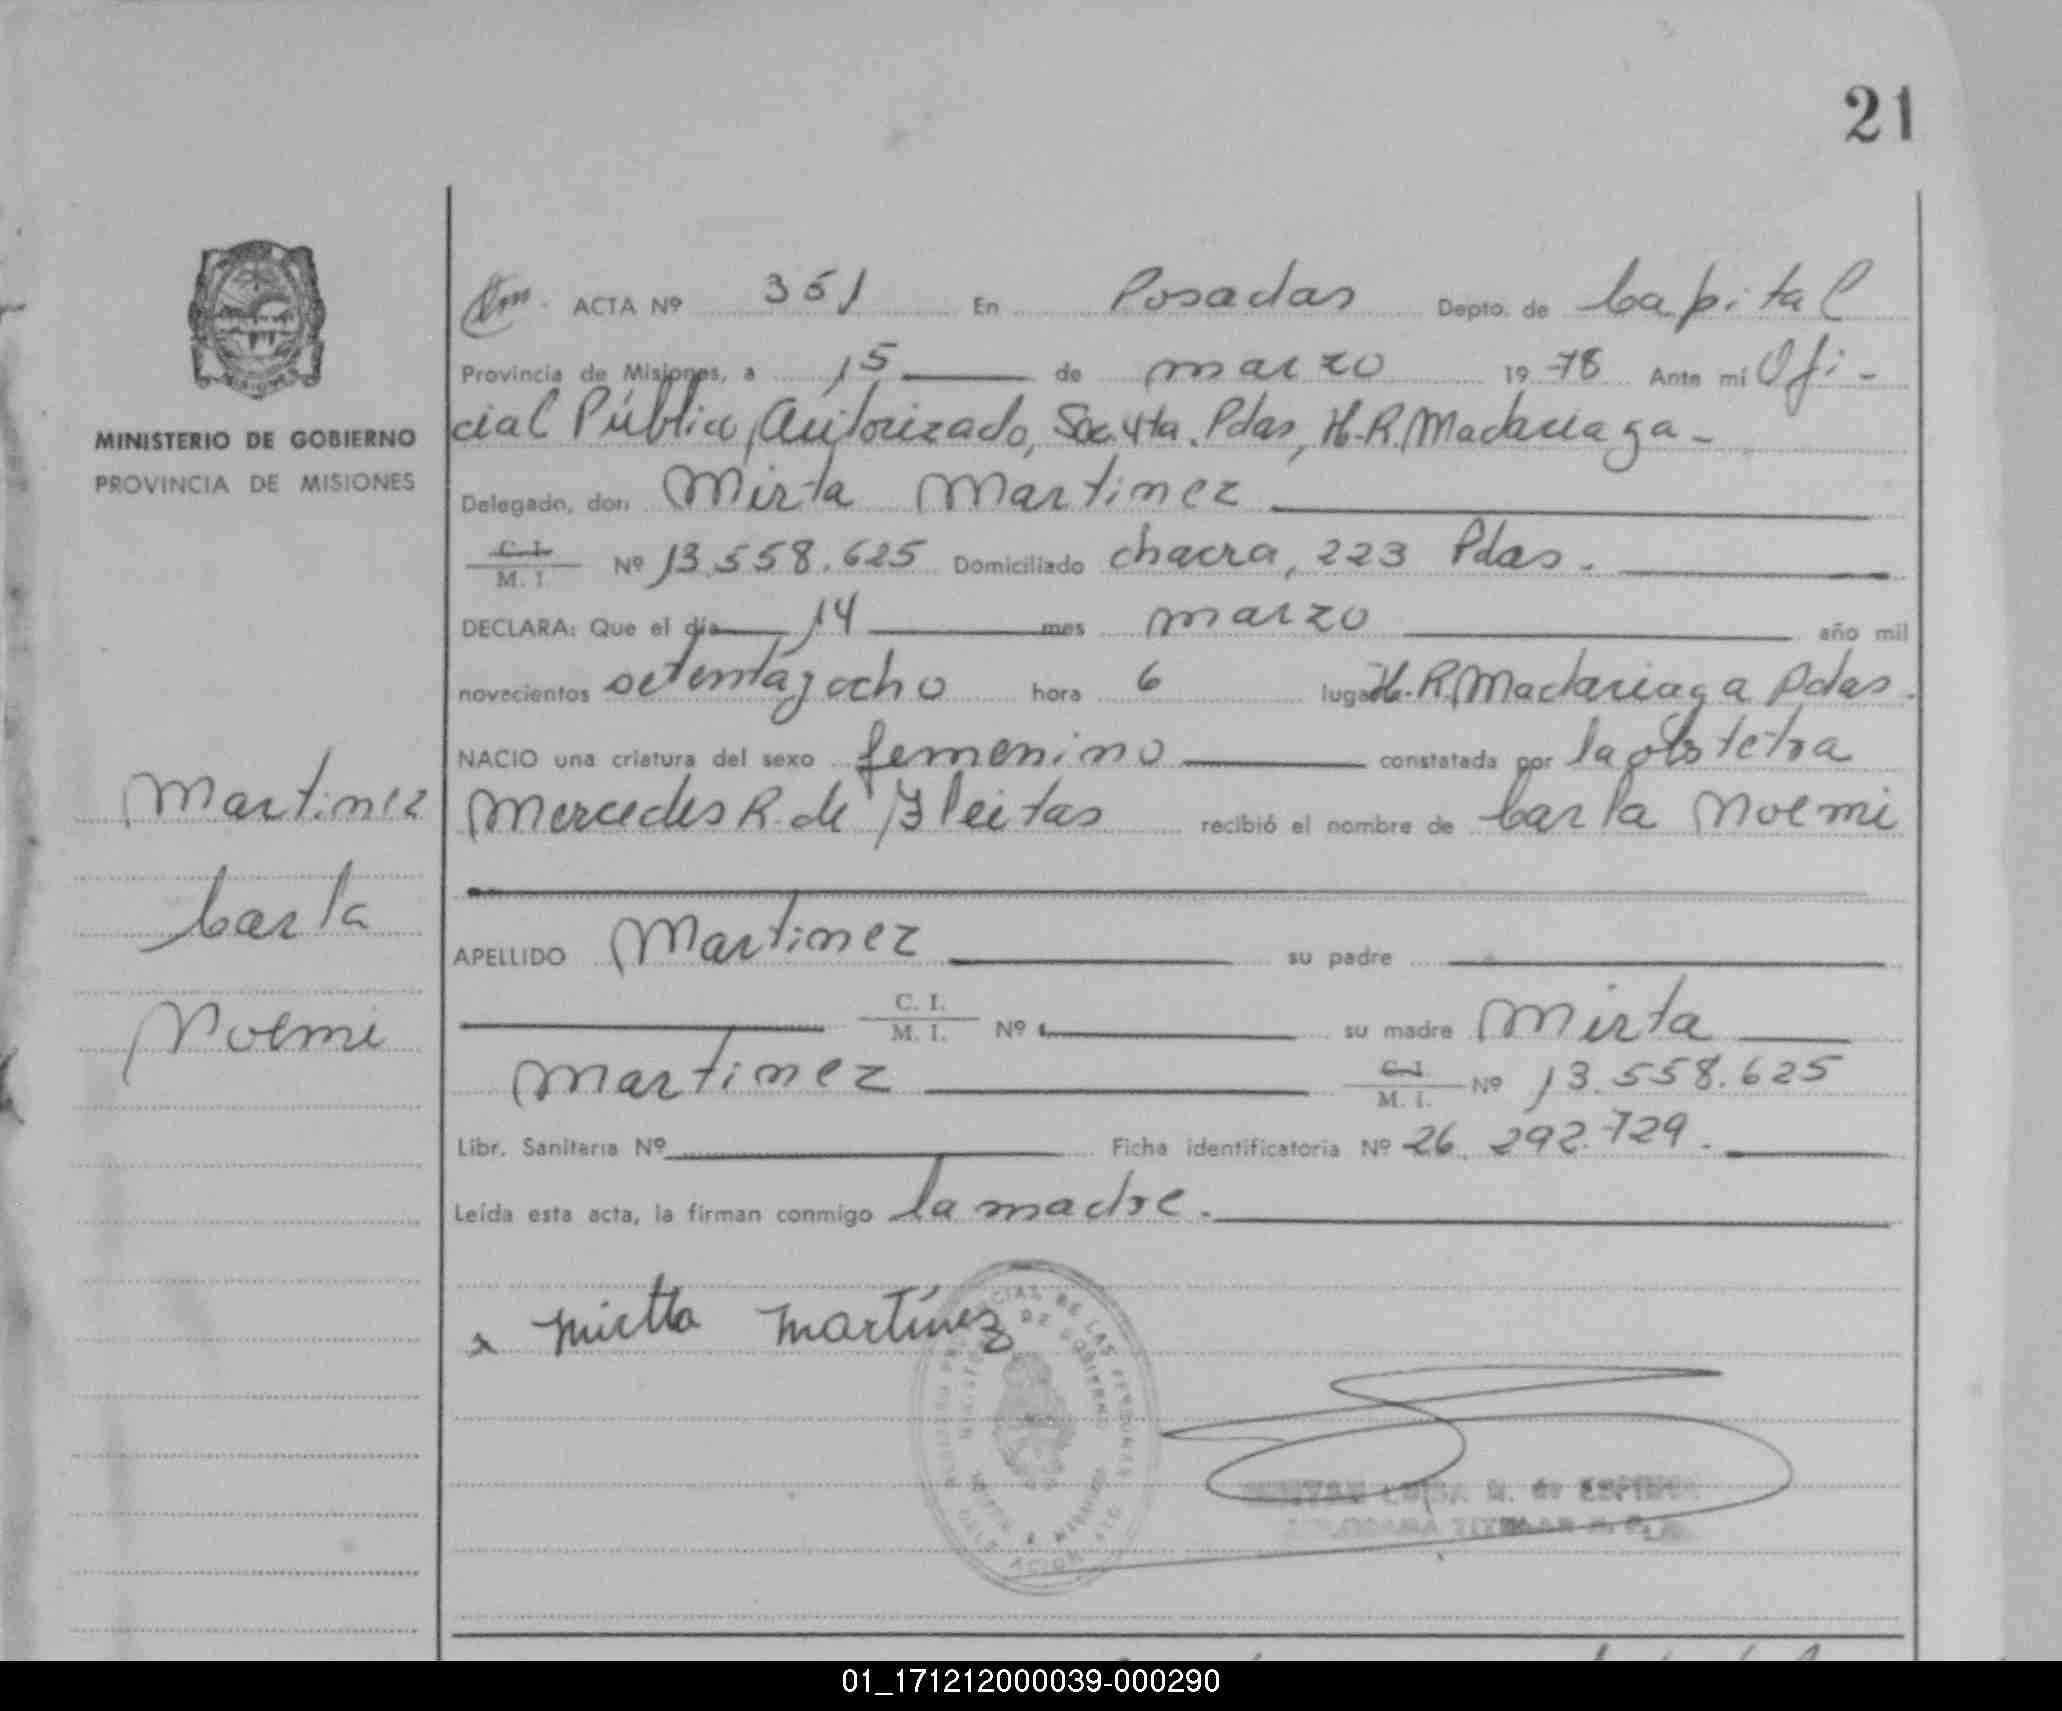 21
ACTA Nº 351 En Posadas Depto. de Capital
Provincia de Misiones, a 15 de marzo 19 78 Ante mí Ofi-
MINISTERIO DE GOBIERNO
PROVINCIA DE MISIONES
cial Público, Autorizado, Sec. 4ta. Pdas, H.R. Madariaga-
Delegado, don Mirta Martinez
C. I. / M. I. Nº 13.558.625 Domiciliado chacra, 223 Pdas.
DECLARA: Que el día 14 mes marzo año mil
novecientos setenta y ocho hora 6 lugar H.R. Madariaga Pdas.
NACIO una criatura del sexo femenino constatada por la obstetra
Mercedes R. de Fleitas recibió el nombre de Carla Noemi
Martinez
Carla
Noemi
APELLIDO Martinez su padre
C. I. / M. I. Nº su madre Mirta
Martinez C. I. / M. I. Nº 13.558.625
Libr. Sanitaria Nº Ficha identificatoria Nº 26.292.729.
Leída esta acta, la firman conmigo la madre.
x Mirtta Martínez
01_171212000039-000290